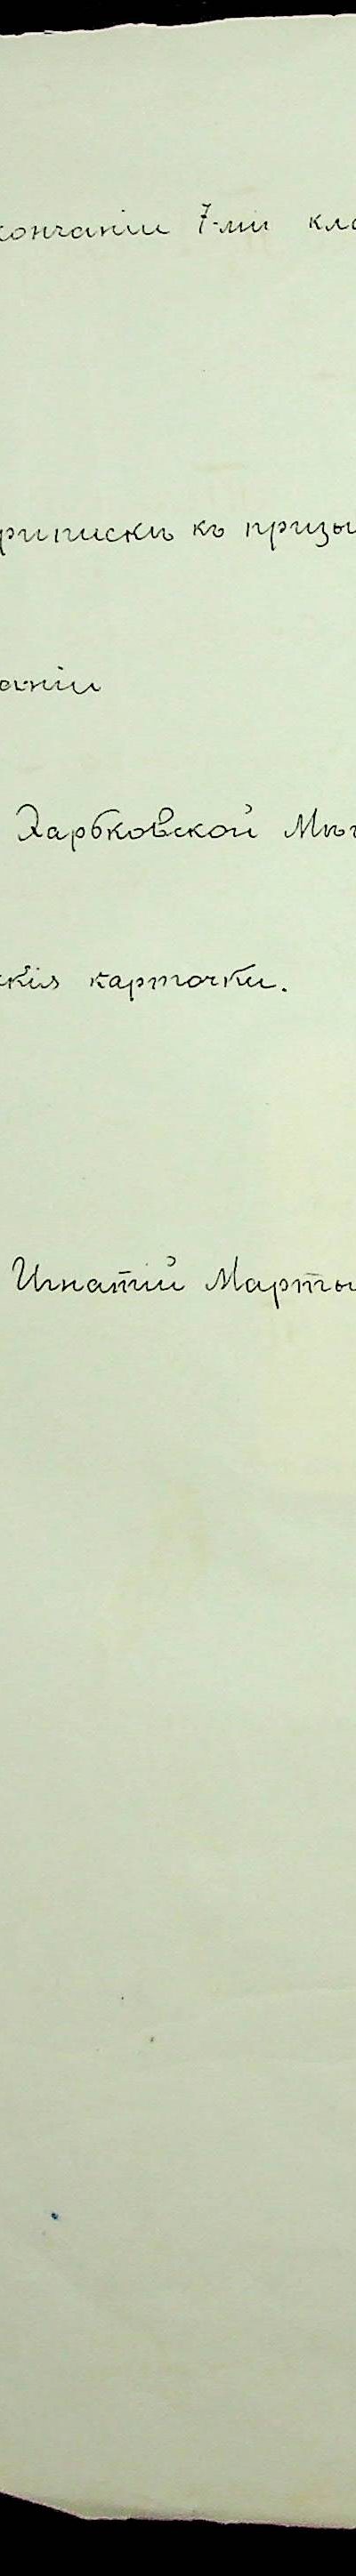 кончаніи 7-ми кла
риписки къ призы
аніи
Харьковской Мѣ
скія карточки.
Игнатій Марты